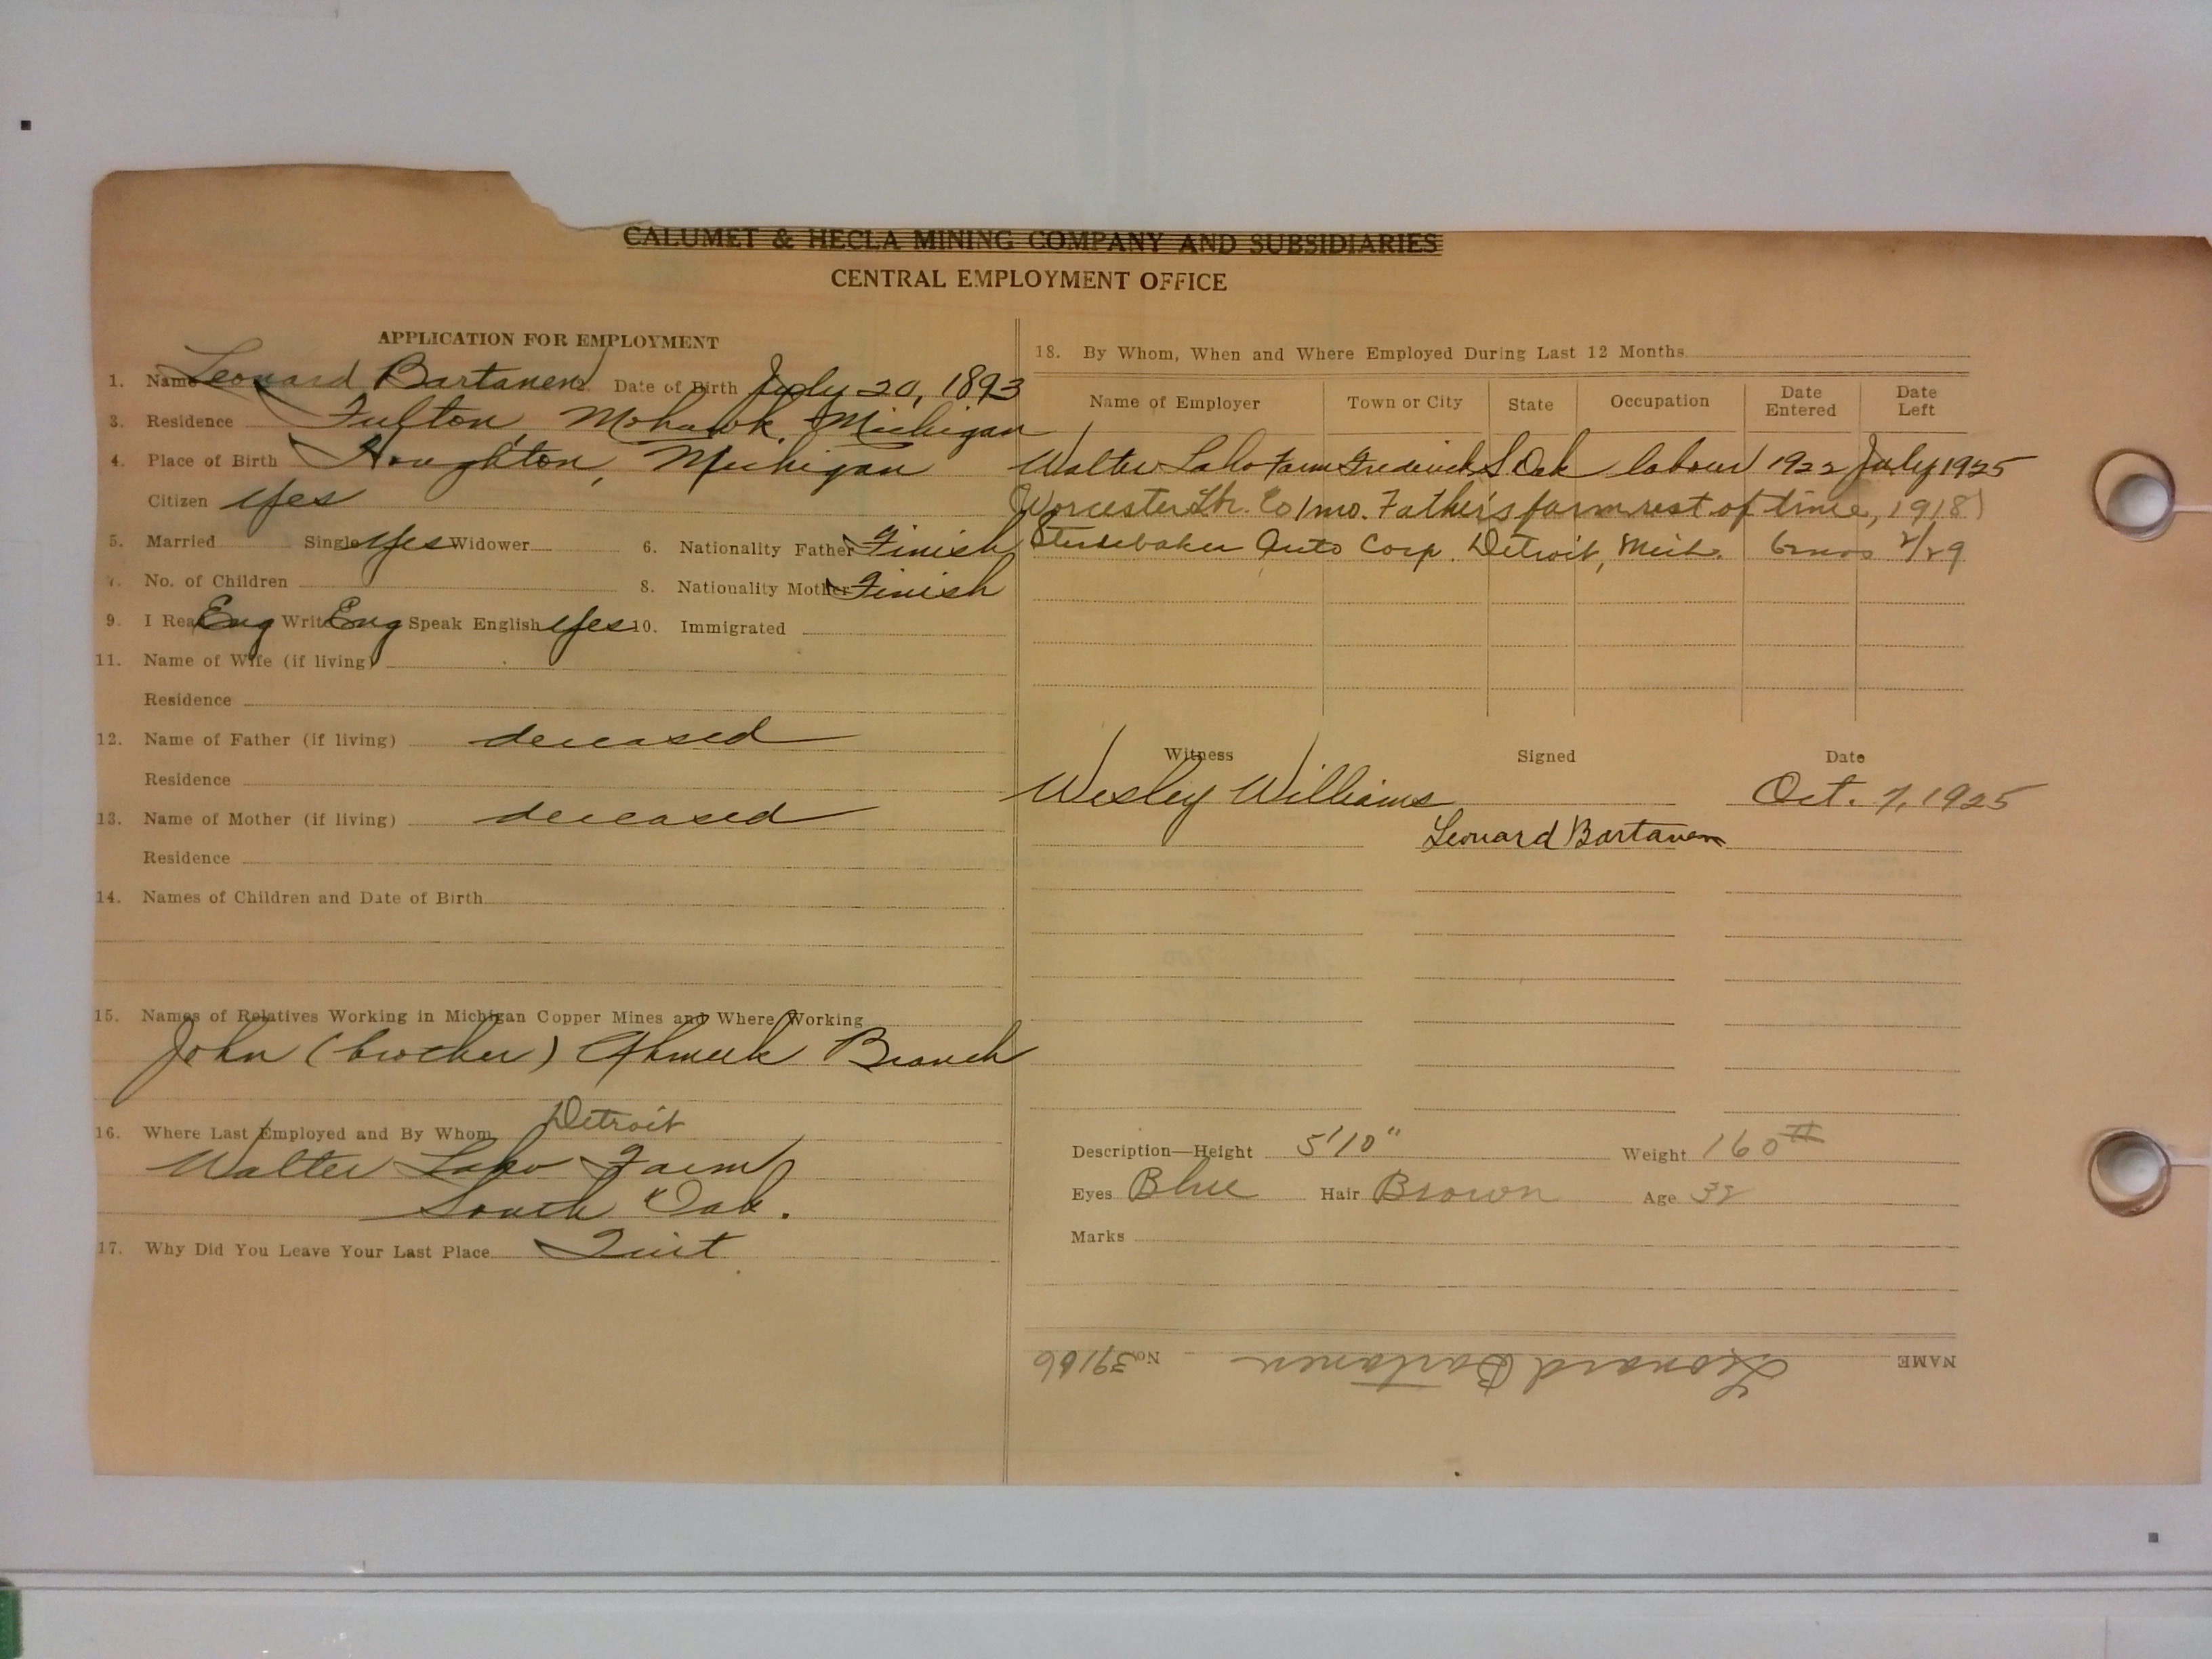 CALUMET & HECLA MINING COMPANY AND SUBSIDIARIES
CENTRAL EMPLOYMENT OFFICE
APPLICATION FOR EMPLOYMENT
1. Name Leonard Bartanen Date of Birth July 20, 1893
3. Residence Fulton, Mohawk, Michigan
4. Place of Birth Houghton, Michigan
Citizen Yes
5. Married Single Yes Widower 6. Nationality Father Finish
7. No. of Children 8. Nationality Mother Finish
9. I Read Eng Write Eng Speak English Yes 10. Immigrated
11. Name of Wife (if living)
Residence
12. Name of Father (if living) deceased
Residence
13. Name of Mother (if living) deceased
Residence
14. Names of Children and Date of Birth
15. Names of Relatives Working in Michigan Copper Mines and Where Working
John (brother) Ahmeek Branch
16. Where Last Employed and By Whom Detroit
Walter Laho Farm
South Dak.
17. Why Did You Leave Your Last Place Quit
18. By Whom, When and Where Employed During Last 12 Months
Name of Employer Town or City State Occupation Date Entered Date Left
Walter Laho Farm Frederick S Dak labour 1922 July 1925
Worcester Lbr. Co 1 mo. Father's farm rest of time, 1918
Studebaker Auto Corp. Detroit, Mich. 6 mos 2/29
Witness Signed Date
Wesley Williams Oct. 7, 1925
Leonard Bartanen
Description—Height 5'10" Weight 160#
Eyes Blue Hair Brown Age 32
Marks
NAME Leonard Bartanen No. 39166